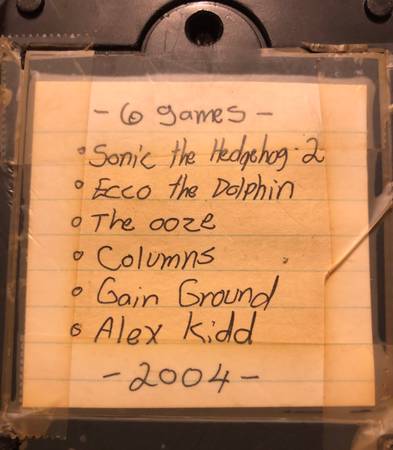 - 6 games -
Sonic the Hedgehog 2
Ecco the Dolphin
The ooze
Columns
Gain Ground
Alex Kidd
- 2004 -